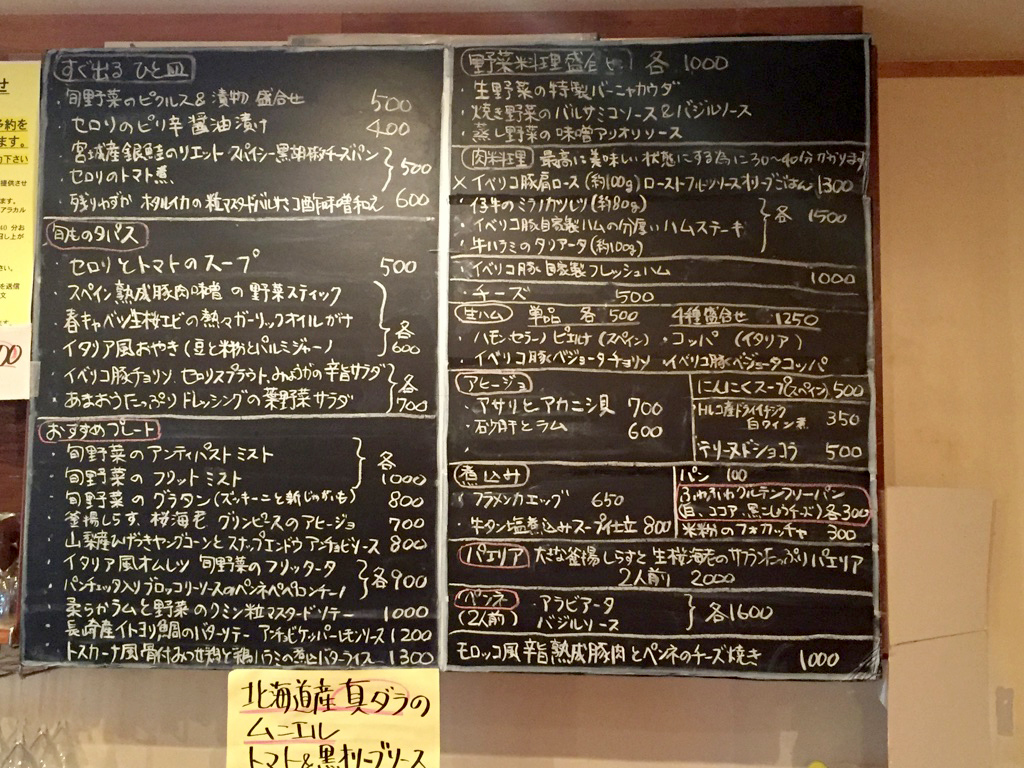 すぐ出る ひと皿
・旬野菜のピクルス&漬物 盛合せ 500
・セロリのピリ辛醤油漬け 400
・宮城産銀鮭のリエット スパイシー黒胡椒チーズパン
・セロリのトマト煮 500
・残りわずか ホタルイカの粒マスタードバルサミコ酢味噌和え 600
旬ものタパス
・セロリとトマトのスープ 500
・スペイン熟成豚肉味噌の野菜スティック
・春キャベツ生桜エビの熱々ガーリックオイルがけ
・イタリア風おやき(豆と米粉とパルミジャーノ) 各600
・イベリコ豚チョリソ、セロリスプラウト、みょうがの辛旨サラダ
・あまおうたっぷりドレッシングの葉野菜サラダ 各700
おすすめプレート
・旬野菜のアンティパストミスト
・旬野菜のフリットミスト 各1000
・旬野菜のグラタン(ズッキーニと新じゃがいも) 800
・釜揚しらす、桜海老 グリンピースのアヒージョ 700
・山梨産ひげつきヤングコーンとスナップエンドウ アンチョビソース 800
・イタリア風オムレツ 旬野菜のフリッタータ
・パンチェッタ入りブロッコリーソースのペンネペペロンチーノ 各900
・柔らかラムと野菜のクミン粒マスタードソテー 1000
・長崎産イトヨリ鯛のバターソテー アンチョビケッパーレモンソース 1200
・トスカーナ風骨付みつせ鶏と鶏ハラミの煮込バターライス 1300
野菜料理盛合せ 各1000
・生野菜の特製バーニャカウダ
・焼き野菜のバルサミコソース&バジルソース
・蒸し野菜の味噌アリオリソース
肉料理 最高に美味しい状態にする為に30〜40分かかります
×イベリコ豚肩ロース(約100g)ローストフルーツソースオリーブごはん 1300
・仔牛のミラノカツレツ(約80g)
・イベリコ豚自家製ハムの分厚いハムステーキ
・牛ハラミのタリアータ(約100g) 各1500
・イベリコ豚自家製フレッシュハム 1000
・チーズ 500
生ハム 単品 各500 4種盛合せ 1250
・ハモンセラーノピエルナ(スペイン)・コッパ(イタリア)
・イベリコ豚ベジョータチョリソ・イベリコ豚ベジョータコッパ
アヒージョ
・アサリとアカニシ貝 700
・砂肝とラム 600
・
にんにくスープ(スペイン) 500
トルコ産ドライイチジク
白ワイン煮 350
テリーヌドショコラ 500
煮込み
・フラメンカエッグ 650
・牛タン塩煮込みスープ仕立 800
パン 100
ふわふわグルテンフリーパン
(白、ココア、黒こしょうチーズ)各300
米粉のフォカッチャ 300
パエリア 大きな釜揚しらすと生桜海老のサフランたっぷりパエリア
2人前 2000
ペンネ
(2人前)
・アラビアータ
バジルソース 各1600
モロッコ風辛旨熟成豚肉とペンネのチーズ焼き 1000
北海道産真ダラの
ムニエル
トマト&黒オリーブソース
せ
予約を
ます。
下さい
提供させ
ます。
アラカル
40分お
召し上が
さい。
を送信
文
00